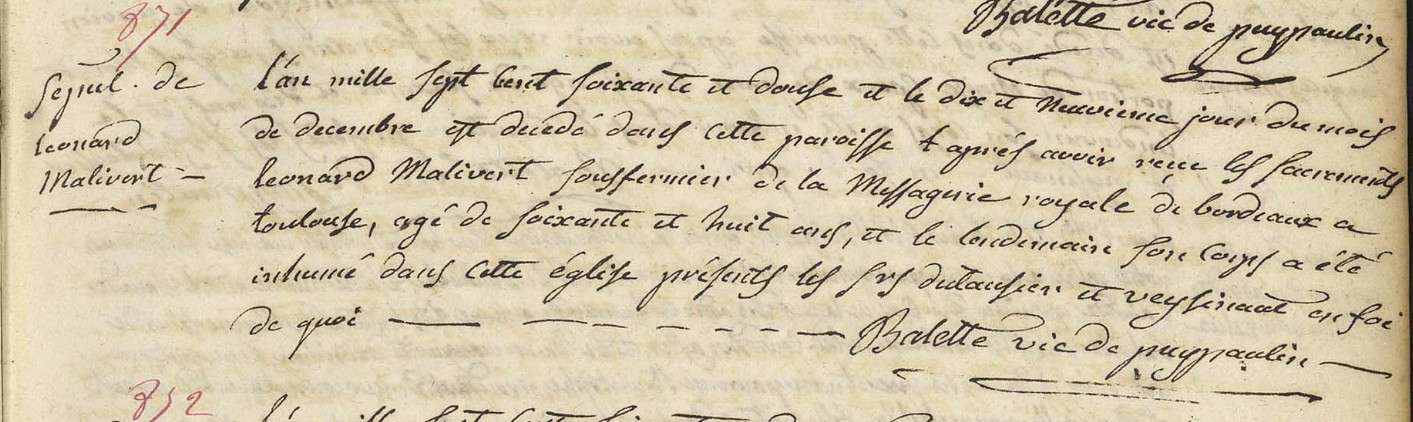 Balette vic de puypaulin
871
Sepul. de
leonard
Malivert
l'an mille sept cent soixante et douse et le dix et neuvieme jour du mois
de decembre est decedé dans cette paroisse aprés avoir reçu les sacrements
leonard Malivert sousfermier de la Messagerie royale de bordeaux a
toulouse, agé de soixante et huit ans, et le lendemain son corps a été
inhumé dans cette église présents les srs dutausier et veyssinaat en foi
de quoi Balette vic de puypaulin
852